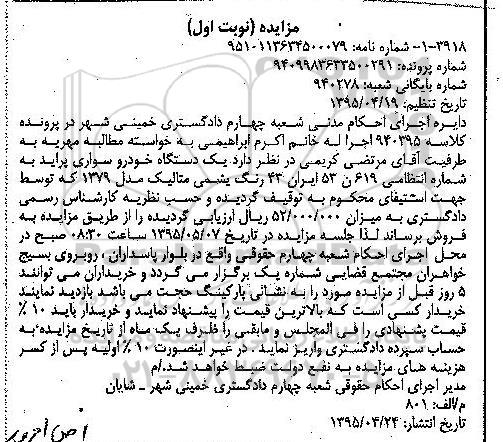 مزایده (نوبت اول)
۱-۳۹۱۸- شماره نامه: ۹۵۱۰۱۱۳۶۳۴۵۰۰۰۷۹
شماره پرونده: ۹۴۰۹۹۸۳۶۳۳۵۰۰۲۹۱
شماره بایگانی شعبه: ۹۴۰۲۷۸
تاریخ تنظیم: ۱۳۹۵/۰۴/۱۹
دایره اجرای احکام مدنی شعبه چهارم دادگستری خمینی شهر در پرونده
کلاسه ۹۴۰۳۹۵ اجرا له خانم اکرم ابراهیمی به خواسته مطالبه مهریه به
طرفیت آقای مرتضی کریمی در نظر دارد یک دستگاه خودرو سواری پراید به
شماره انتظامی ۶۱۹ ن ۵۳ ایران ۴۳ رنگ یشمی متالیک مدل ۱۳۷۹ که توسط
جهت استیفای محکوم به توقیف گردیده و حسب نظریه کارشناس رسمی
دادگستری به میزان ۵۲/۰۰۰/۰۰۰ ریال ارزیابی گردیده را از طریق مزایده به
فروش برساند لذا جلسه مزایده در تاریخ ۱۳۹۵/۰۵/۰۷ ساعت ۰۸:۳۰ صبح در
محل اجرای احکام شعبه چهارم حقوقی واقع در بلوار پاسداران ، روبروی بسیج
خواهران مجتمع قضایی شماره یک برگزار می گردد و خریداران می توانند
۵ روز قبل از مزایده مورد را به نشانی پارکینگ حجت می باشد بازدید نمایند
خریدار کسی است که بالاترین قیمت را پیشنهاد نمایند و خریدار باید ۱۰ ٪
قیمت پشنهادی را فی المجلس و مابقی را ظرف یک ماه از تاریخ مزایده به
حساب سپرده دادگستری واریز نماید . در غیر اینصورت ۱۰ ٪ اولیه پس از کسر
هزینه های مزایده به نفع دولت ضبط خواهد شد./م
مدیر اجرای احکام حقوقی شعبه چهارم دادگستری خمینی شهر ـ شایان
م/الف: ۸۰۱
تاریخ انتشار: ۱۳۹۵/۰۴/۲۴